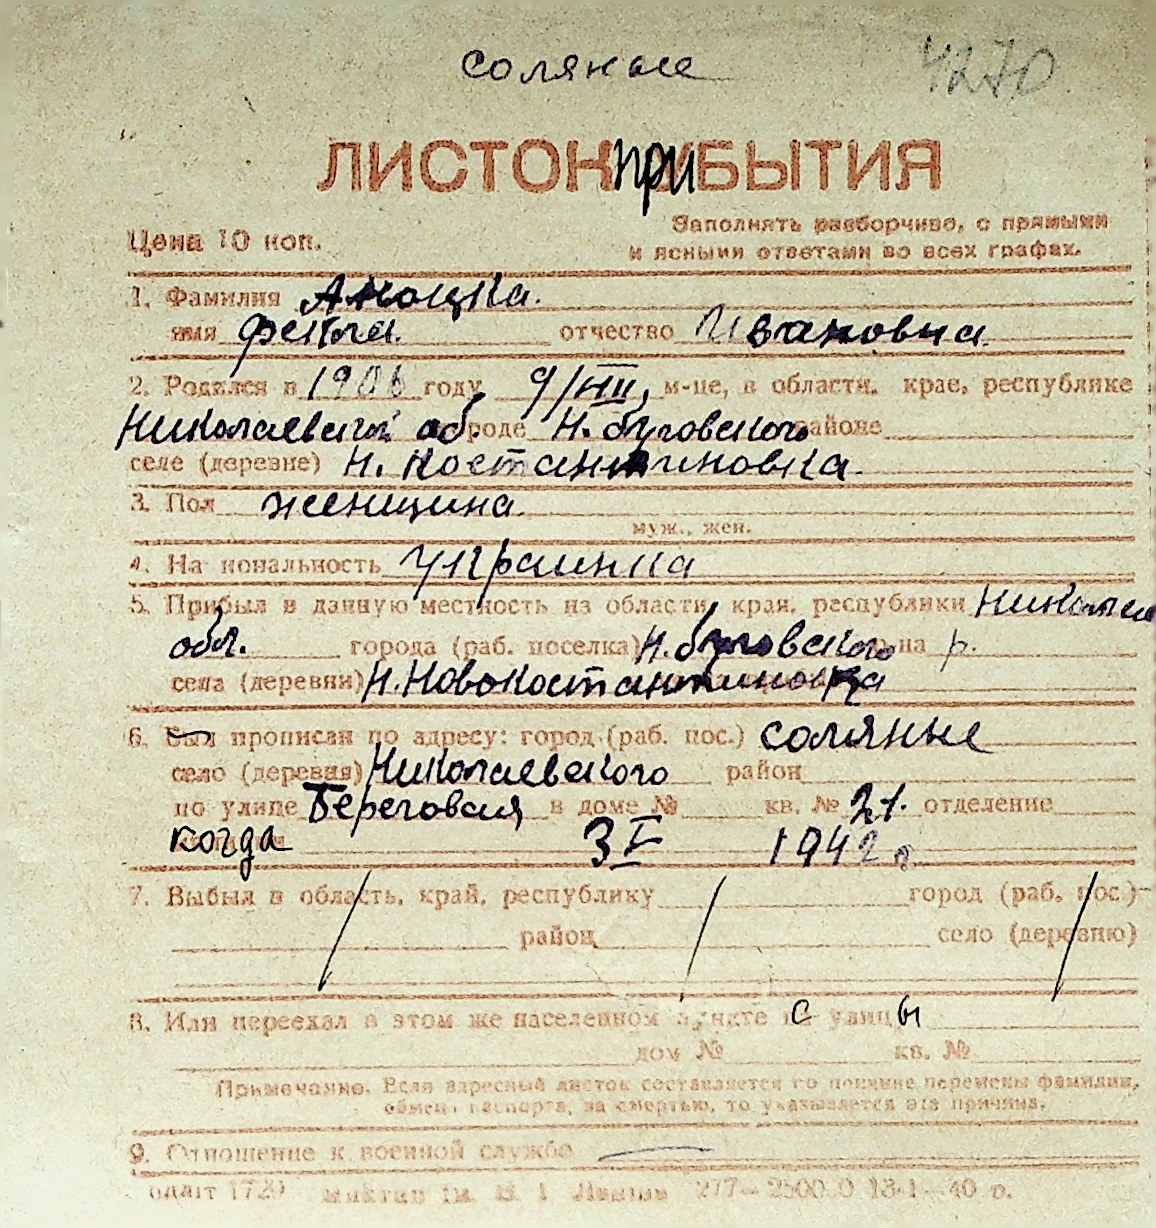 Соляные 4270
ЛИСТОК ПРИБЫТИЯ
Цена 10 коп. Заполнять разборчиво, с прямыми
и ясными ответами во всех графах.
1. Фамилия Аноцка.
имя Фекла. отчество Ивановна.
2. Родился в 1906 году 9/VIII, м-це, в области, крае, республике
Николаевской об. городе Н. буговского районе
селе (деревне) Н. Костантиновка.
3. Пол женщина
муж., жен.
4. Национальность украинка
5. Прибыл в данную местность из области, края, республики Николаев
обл. города (раб. поселка) Н. буговского на р.
села (деревни) Н. Новокостантиновка
6. Был прописан по адресу: город (раб. пос.) соляные
село (деревня) Николаевского район
по улице Береговая в доме № кв. № 21. отделение
когда 3 V 1942 г
7. Выбыл в область, край, республику город (раб. пос.)
район село (деревню)
8. Или переехал в этом же населенном пункте с улицы
дом № кв. №
Примечание. Если адресный листок составляется по причине перемены фамилии,
обмена паспорта, за смертью, то указывается эта причина.
9. Отношение к военной службе
1720 им. В. І Леніна 277—2500.0 13-1—40 р.